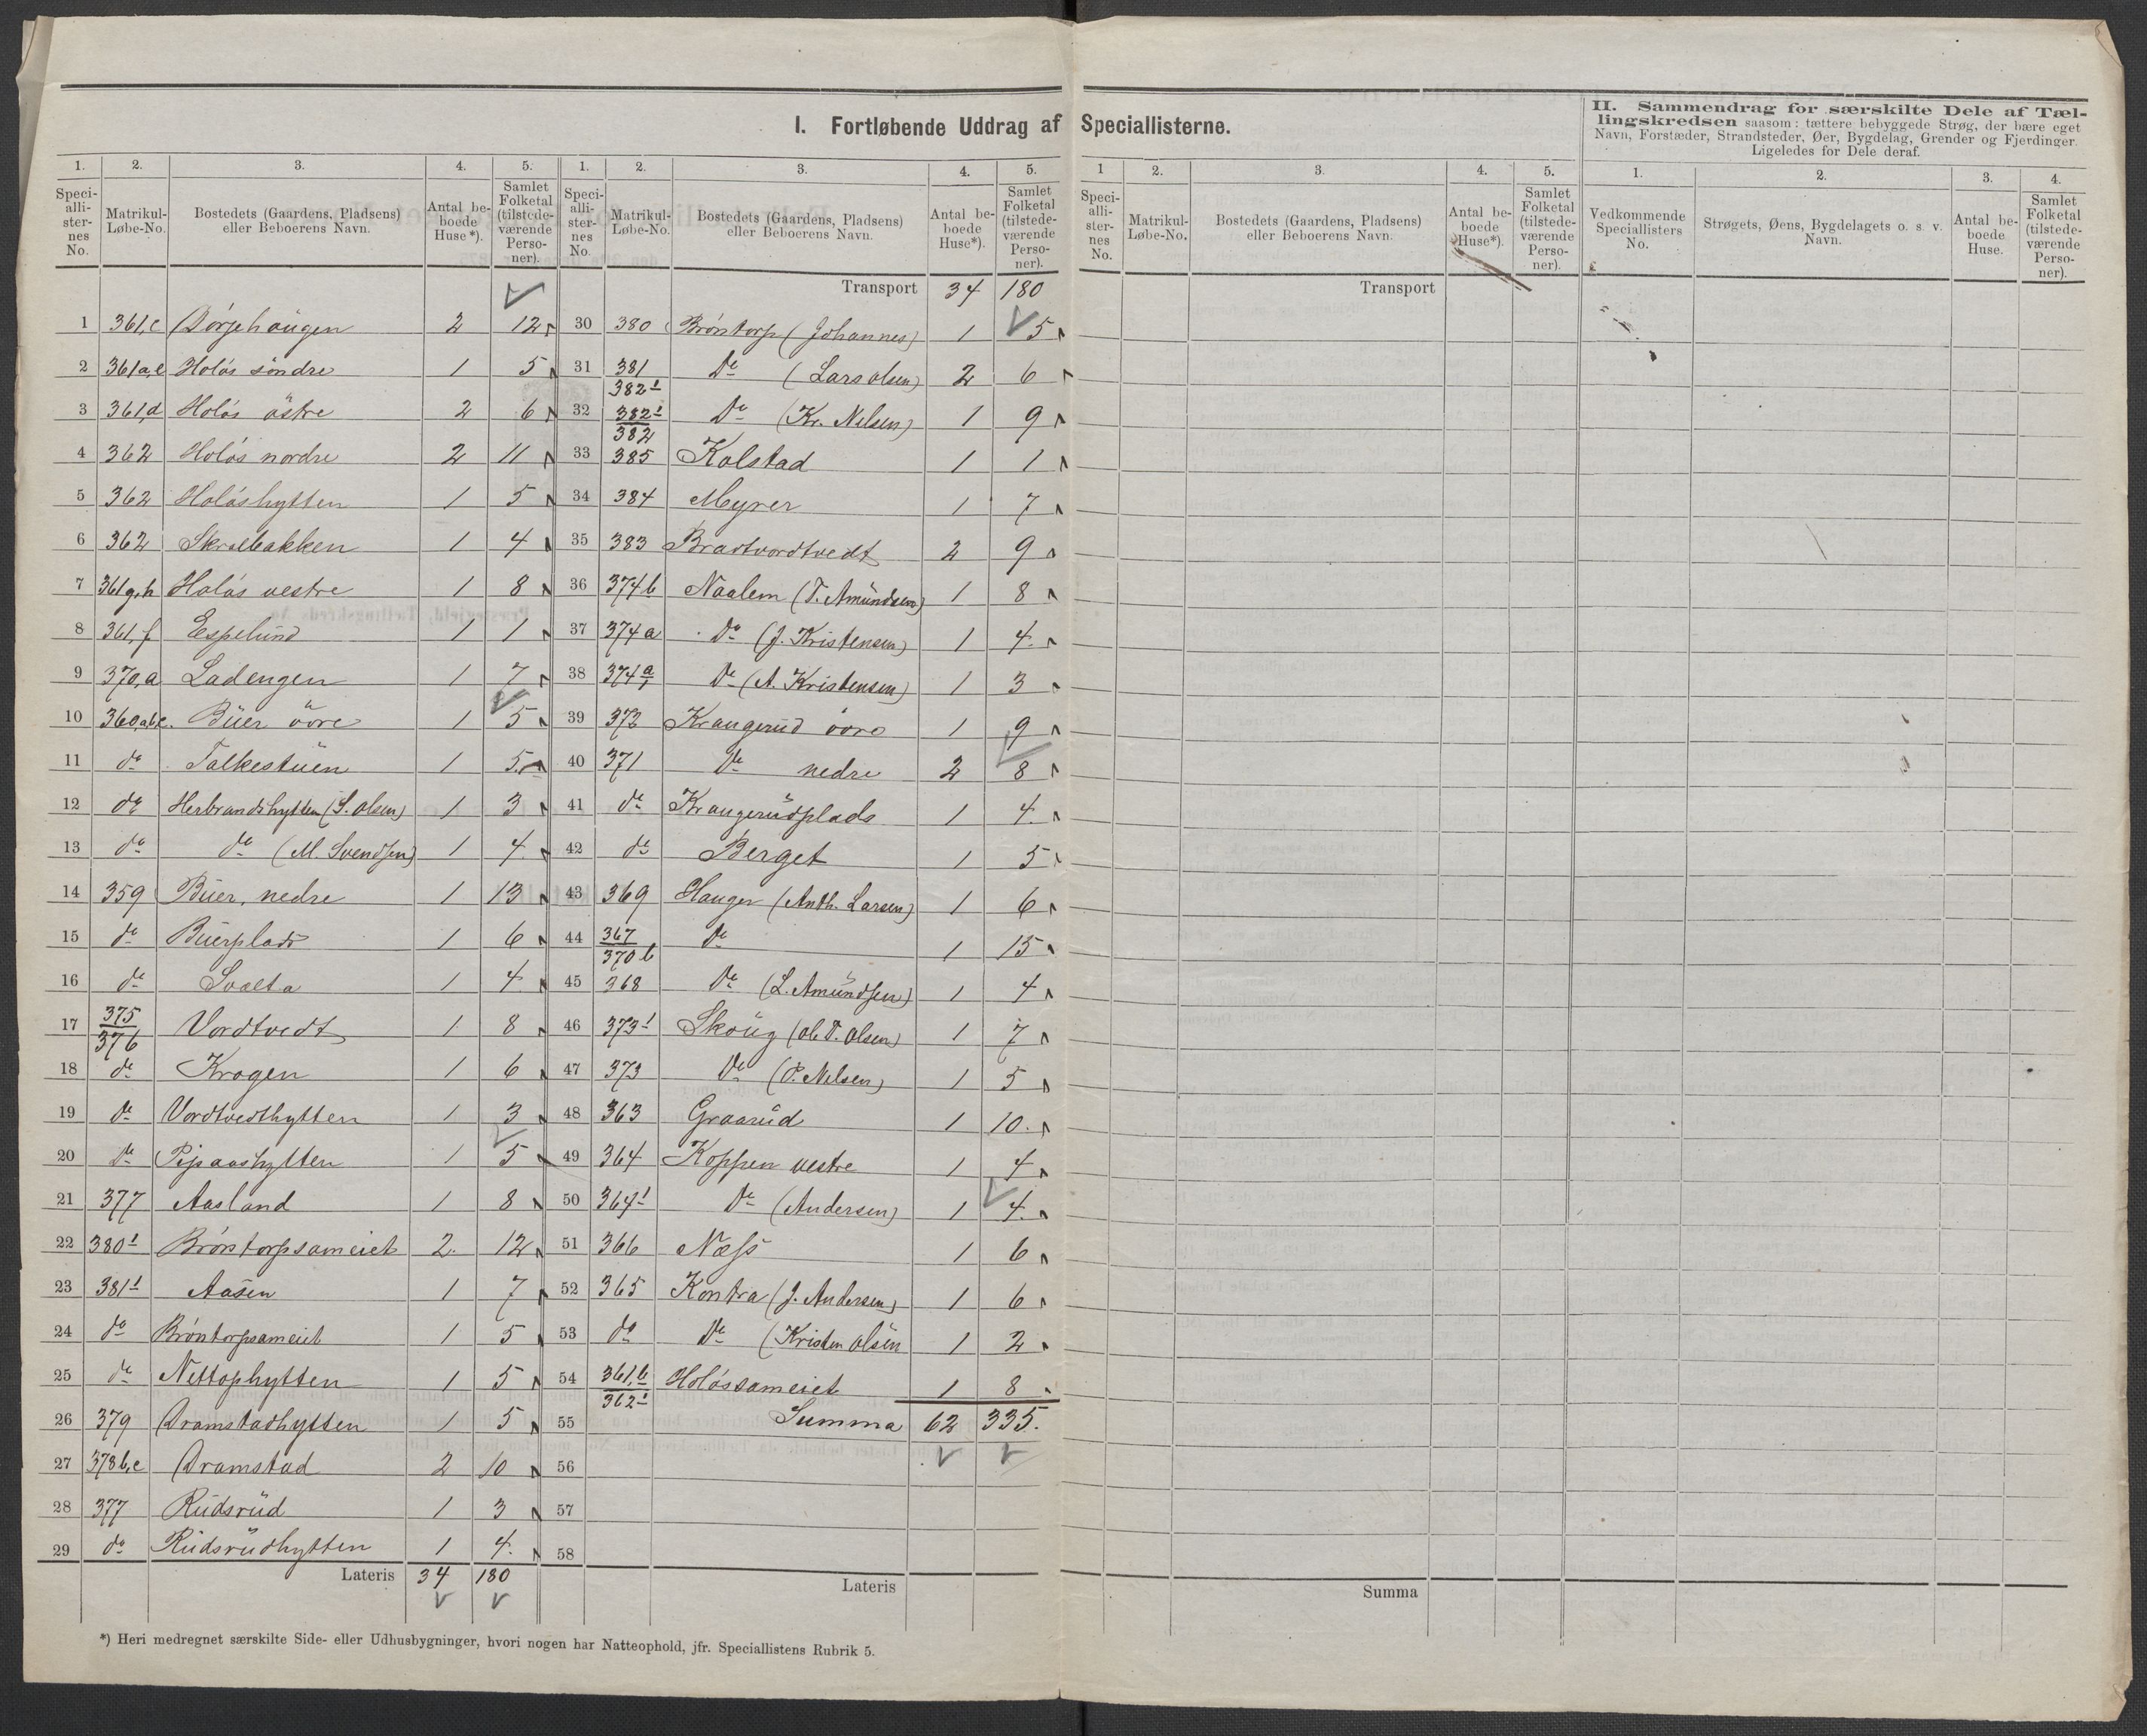 I. Fortløbende Uddrag af Speciallisterne.
II. Sammendrag for særskilte Dele af Tæl-
lingskredsen saasom: tættere bebyggede Strøg, der bære eget
Navn, Forstæder, Strandsteder, Øer, Bygdelag, Grender og Fjerdinger.
Ligeledes for Dele deraf.
1. 2. 3. 4. 5.
Speciallisternes No. Matrikul-Løbe-No. Bostedets (Gaardens, Pladsens) eller Beboerens Navn. Antal beboede Huse*). Samlet Folketal (tilstedeværende Personer).
1 361,c Dørjehaugen 2 12
2 361a,e Holøs søndre 1 5
3 361,d Holøs østre 2 6
4 362 Holøs nordre 2 11
5 362 Holøshytten 1 5
6 362 Skrælbakken 1 4
7 361g,h Holøs vestre 1 8
8 361,f Espelund 1 1
9 370,a Ladengen 1 7
10 360,a,b,c. Büer övre 1 5
11 do Talkestüen 1 5
12 do Herbrandshytten (S. Olsen) 1 3
13 do do (M. Svendsen) 1 4
14 359 Büer, nedre 1 13
15 do Büerplads 1 6
16 do Svælta 1 4
17 375/376 Vordtvedt 1 8
18 do Krogen 1 6
19 do Vordtvedthytten 1 3
20 do Pipaashytten 1 5
21 377 Aasland 1 8
22 380¹ Brönstorpsameiet 2 12
23 381¹ Aasen 1 7
24 do Bröntorpsameiet 1 5
25 do Nettophytten 1 5
26 379 Dramstadhytten 1 5
27 378b,c Dramstad 2 10
28 377 Rüdsrüd 1 3
29 do Rüdsrüdhytten 1 4
Lateris 34 180
1. 2. 3. 4. 5.
Speciallisternes No. Matrikul-Løbe-No. Bostedets (Gaardens, Pladsens) eller Beboerens Navn. Antal beboede Huse*). Samlet Folketal (tilstedeværende Personer).
Transport 34 180
30 380 Brönstorp (Johannes) 1 5
31 381 382¹ do (Lars Olsen) 2 6
32 382¹/382 do (Kr. Nilsen) 1 9
33 385 Kolstad 1 1
34 384 Myrer 1 7
35 383 Bratvordtvedt 2 9
36 374b Naalem (T. Amündsen) 1 8
37 374a do (J. Kristensen) 1 4
38 374a/1 do (A. Kristensen) 1 3
39 372 Krangerüd övre 1 9
40 371 do nedre 2 8
41 do Krangerüdplads 1 4
42 do Berget 1 5
43 369 Hauger (Anth. Larsen) 1 6
44 367/370b do 1 15
45 368 do (L. Amündsen) 1 4
46 373¹ Skoüg (Ole T. Olsen) 1 7
47 373 do (P. Nilsen) 1 5
48 363 Graarüd 1 10
49 364 Koppen vestre 1 4
50 364¹ do (Andersen) 1 4
51 366 Næss 1 6
52 365 Kontra (J. Andersen) 1 6
53 do do (Kristen Olsen 1 2
54 361,b/362¹ Holøssameiet 1 8
55 Summa 62 335.
56
57
58
Lateris
1 2. 3. 4. 5.
Speciallisternes No. Matrikul-Løbe-No. Bostedets (Gaardens, Pladsens) eller Beboerens Navn. Antal beboede Huse*). Samlet Folketal (tilstedeværende Personer).
Transport
Summa
1. 2. 3. 4.
Vedkommende Speciallisters No. Strøgets, Øens, Bygdelagets o. s. v. Navn. Antal beboede Huse. Samlet Folketal (tilstedeværende Personer).
*) Heri medregnet særskilte Side- eller Udhusbygninger, hvori nogen har Natteophold, jfr. Speciallistens Rubrik 5.